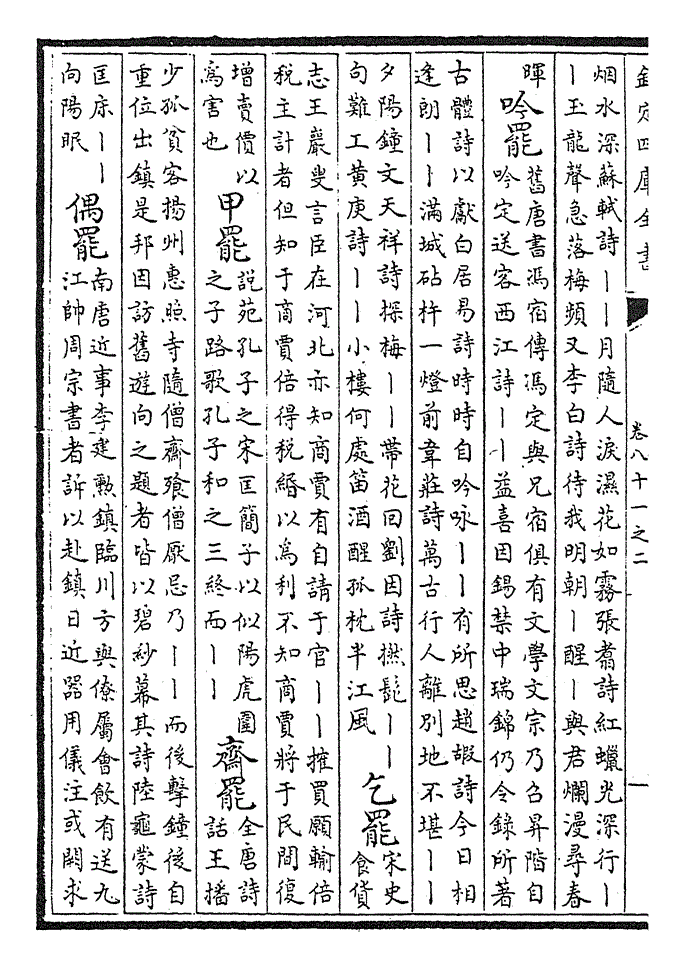 欽定四庫全書 卷八十一之二 一
烟水深蘇軾詩丨丨月隨人淚濕花如霧張翥詩紅蠟光深行丨
丨玉龍聲急落梅頻又李白詩待我明朝丨醒丨與君爛漫尋春
暉
吟罷
舊唐書馮宿傳馮定與兄宿俱有文學文宗乃召昇階自
吟定送客西江詩丨丨益喜因錫禁中瑞錦仍令錄所著
古體詩以獻白居易詩時時自吟咏丨丨有所思趙嘏詩今日相
逢朗丨丨滿城砧杵一燈前韋莊詩萬古行人離別地不堪丨丨
夕陽鐘文天祥詩探梅丨丨帶花回劉因詩撚髭丨丨
句難工黃庚詩丨丨小樓何處笛酒醒孤枕半江風
乞罷
宋史
食貨
志王巖叟言臣在河北亦知商賈有自請于官丨丨擁買願輸倍
税主計者但知于商賈倍得税緡以為利不知商賈將于民間復
增賣價以
為害也
甲罷
說苑孔子之宋匡簡子以似陽虎圍
之子路歌孔子和之三終而丨丨
齋罷
全唐詩
話王播
少孤貧客揚州惠照寺隨僧齋飡僧厭忌乃丨丨而後擊鐘後自
重位出鎮是邦因訪舊遊向之題者皆以碧紗幕其詩陸龜蒙詩
匡床丨丨
向陽眠
偶罷
南唐近事李建勲鎮臨川方與僚屬會飲有送九
江帥周宗書者訴以赴鎮日近器用儀注或闕求